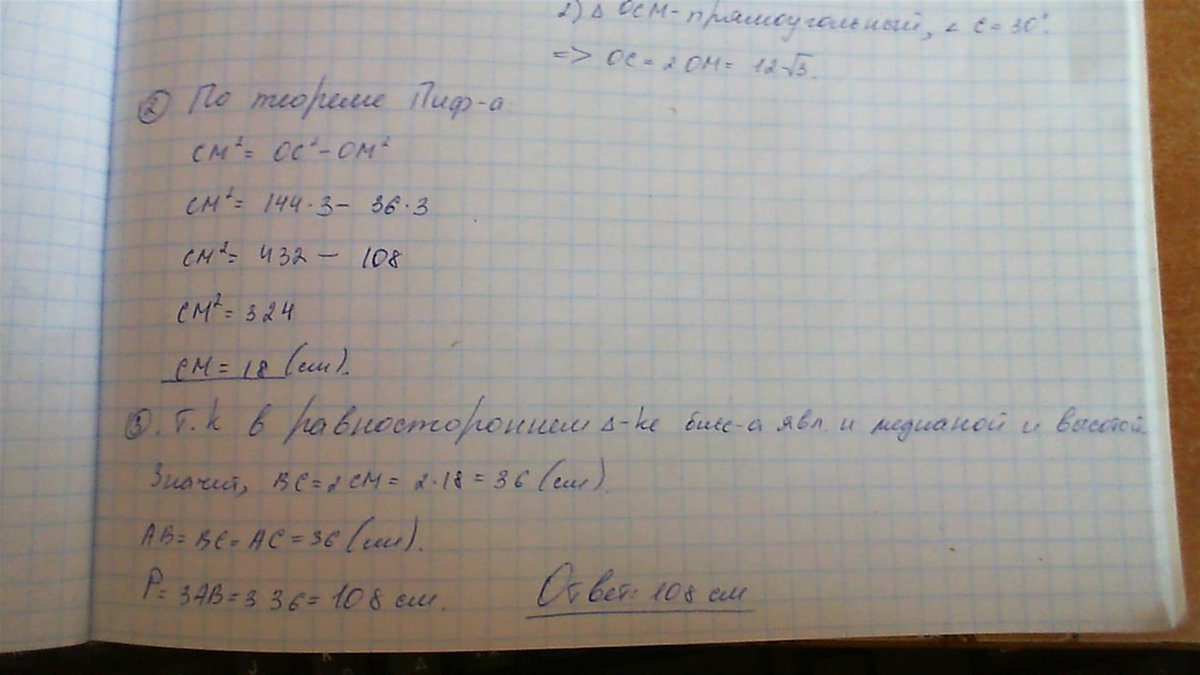 2) Δ OCM - прямоугольный, ∠ C = 30°.
=> OC = 2 OM = 12√3.
② По теореме Пиф-а
CM² = OC² - OM²
CM² = 144·3 - 36·3
CM² = 432 - 108
CM² = 324
CM = 18 (см).
③. Т.к в равностороннем Δ-ке бисс-а явл. и медианой и высотой
Значит, BC = 2CM = 2·18 = 36 (см).
AB = BC = AC = 36 (см).
P = 3AB = 3 36 = 108 см.
Ответ: 108 см